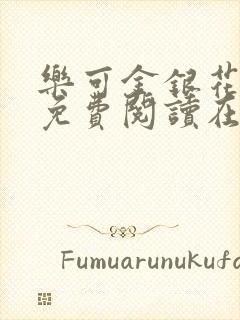 樂可金銀花
免費閱讀在
Fumuarunukufa